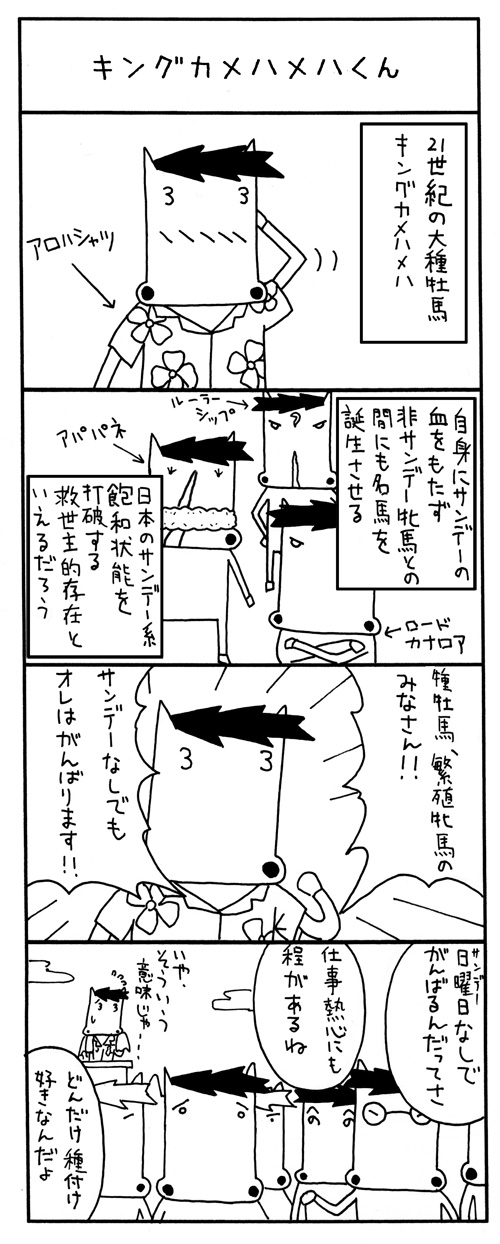 キングカメハメハくん
21世紀の大種牡馬
キングカメハメハ
アロハシャツ
自身にサンデーの
血をもたず
非サンデー牝馬との
間にも名馬を
誕生させる
ルーラー
シップ
アパパネ
ロード
カナロア
日本のサンデー系
飽和状態を
打破する
救世主的存在と
いえるだろう
種牡馬、繁殖牝馬の
みなさん!!
サンデーなしでも
オレはがんばります!!
サンデー
日曜日なしで
がんばるんだってさ
仕事熱心にも
程があるね
いや、
そういう
意味じゃ…
どんだけ種付け
好きなんだよ